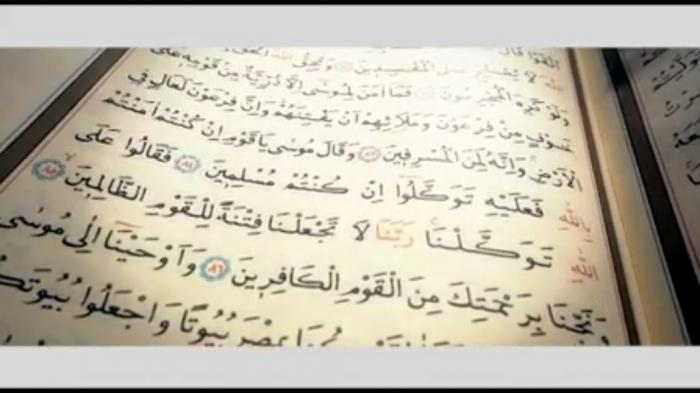 اللهَ لَا يُصْلِحُ عَمَلَ الْمُفْسِدِينَ وَيُحِقُّ اللهُ الْحَقَّ
وَلَوْ كَرِهَ الْمُجْرِمُونَ فَمَا اٰمَنَ لِمُوسٰى اِلَّا ذُرِّيَّةٌ مِنْ قَوْمِهِ عَلٰى
خَوْفٍ مِنْ فِرْعَوْنَ وَمَلَائِهِمْ اَنْ يَفْتِنَهُمْ وَاِنَّ فِرْعَوْنَ لَعَالٍ فِي
الْاَرْضِ وَاِنَّهُ لَمِنَ الْمُسْرِفِينَ ٨٣ وَقَالَ مُوسٰى يَا قَوْمِ اِنْ كُنْتُمْ اٰمَنْتُمْ
بِاللهِ فَعَلَيْهِ تَوَكَّلُوا اِنْ كُنْتُمْ مُسْلِمِينَ ٨٤ فَقَالُوا عَلَى
اللهِ تَوَكَّلْنَا رَبَّنَا لَا تَجْعَلْنَا فِتْنَةً لِلْقَوْمِ الظَّالِمِينَ ٨٥
وَنَجِّنَا بِرَحْمَتِكَ مِنَ الْقَوْمِ الْكَافِرِينَ ٨٦ وَاَوْحَيْنَا اِلٰى مُوسٰى
بِمِصْرَ بُيُوتًا وَاجْعَلُوا بُيُوتَكُ